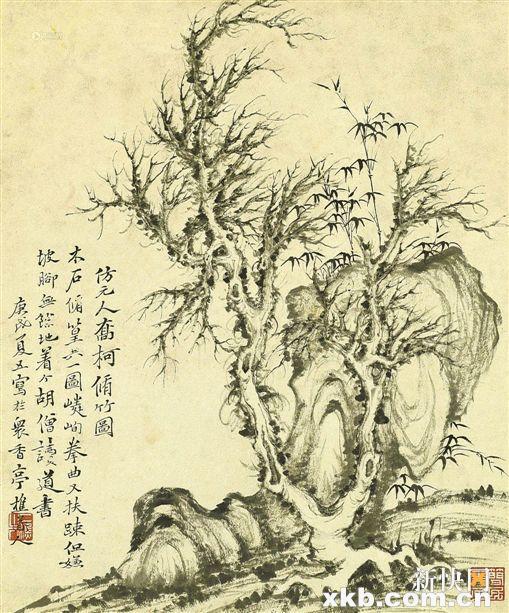 仿元人喬柯脩竹圖
木石脩篁共一圖嶙峋拳曲又扶踈但嫌
坡腳無餘地着个胡僧讀道書
庚戌夏五寫於眾香亭樵
新快
xkb.com.cn